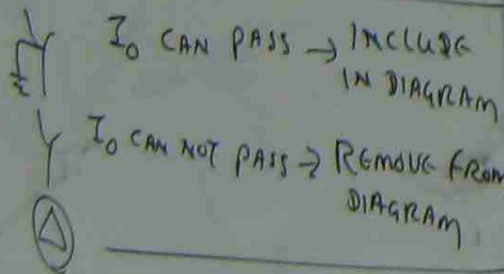 I₀ CAN PASS → INCLUDE
IN DIAGRAM
I₀ CAN NOT PASS → REMOVE FROM
DIAGRAM